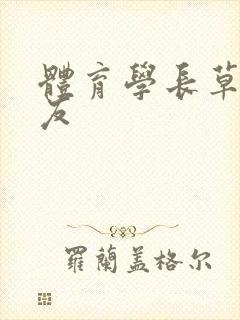 體育學長草
友
羅蘭盖格尔